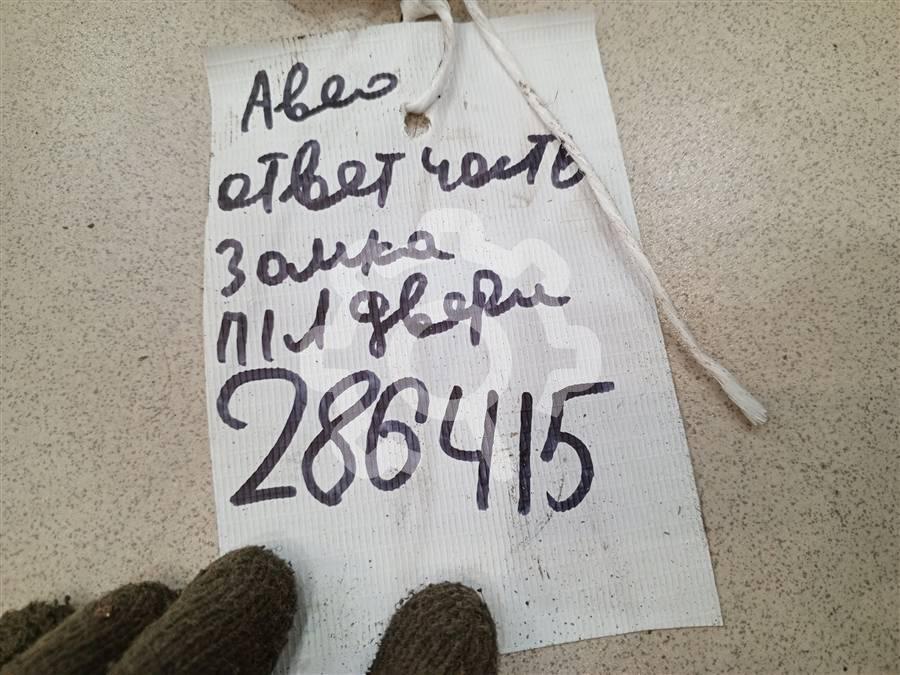 Авео
ответ часть
замка
П/Л двери
286415